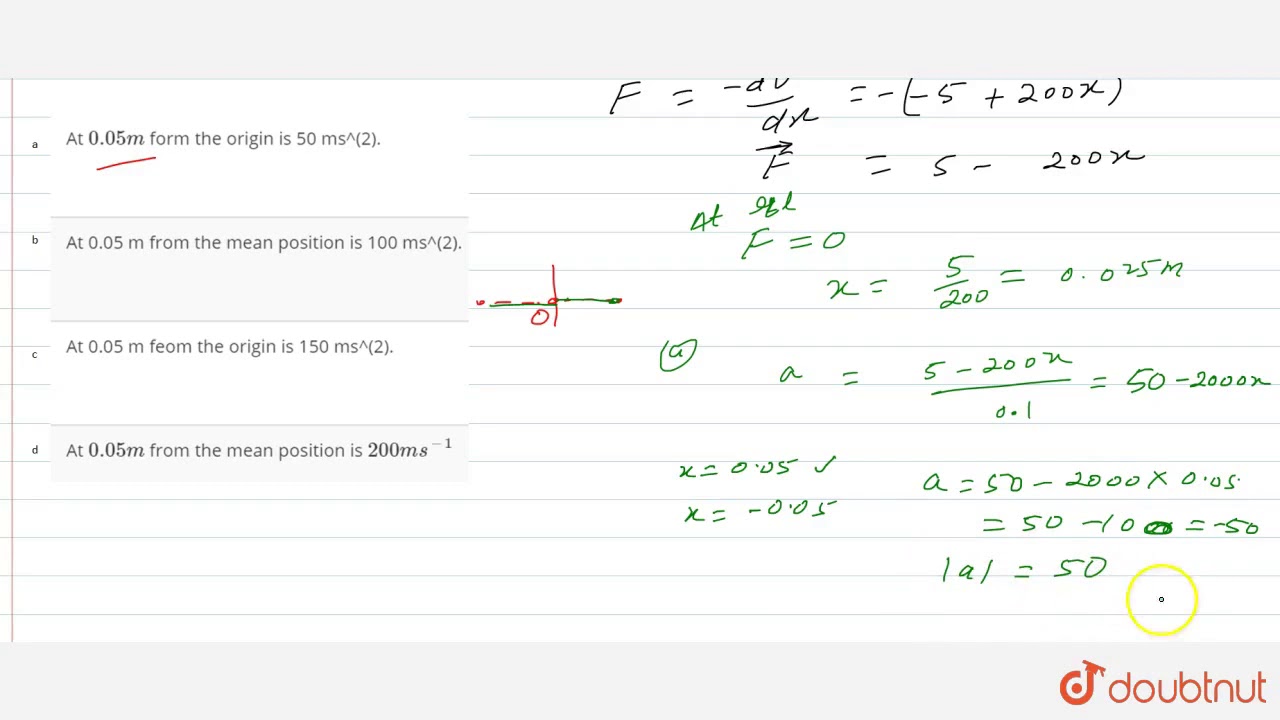 F = -dV/dx = -(-5 + 200x)
F = 5 - 200x
a At 0.05m form the origin is 50 ms^(2).
At eql
F = 0
x = 5/200 = 0.025m
b At 0.05 m from the mean position is 100 ms^(2).
O
c At 0.05 m feom the origin is 150 ms^(2).
(a)
a = 5 - 200x / 0.1 = 50 - 2000x
d At 0.05m from the mean position is 200ms^-1
x = 0.05 ✓
x = -0.05
a = 50 - 2000 × 0.05
= 50 - 100 = -50
|a| = 50
doubtnut